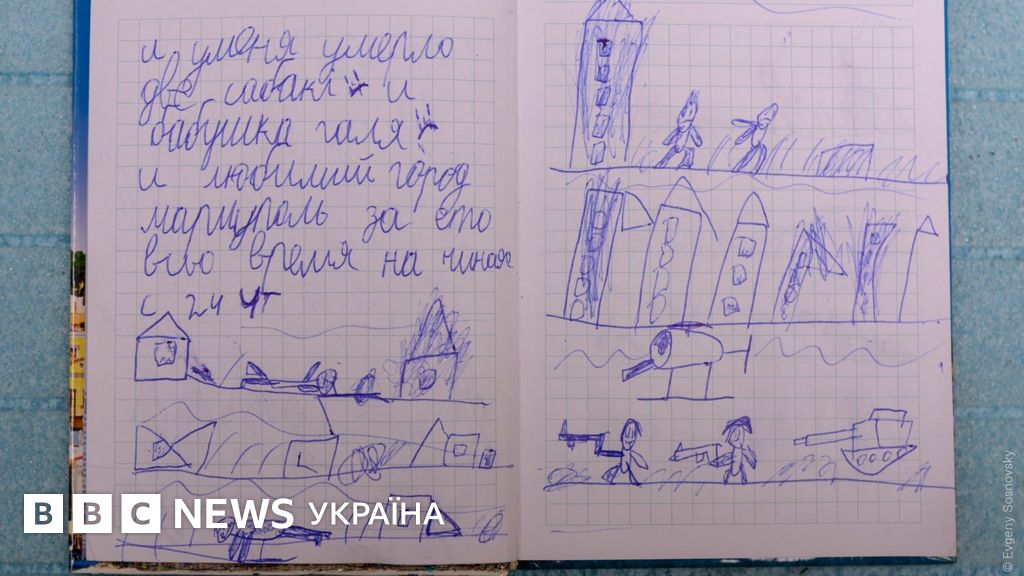 и у меня умерло
две сабаки и
бабушка галя
и любимий город
мариуполь за ето
всю время на чиная
с 24 чт
BBC NEWS УКРАЇНА
© Evgeny Sosnovsky